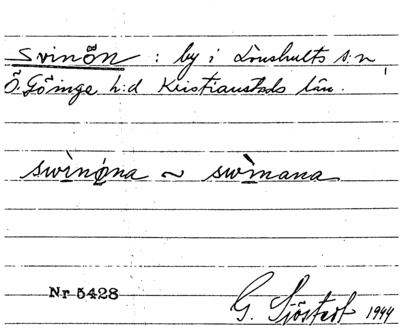 Svinön : by i Lönshults s:n,
Ö. Göinge h:d Kristianstads län.
swìnǫ́na ~ swìnana
Nr 5428
G. Sjöstedt 1944